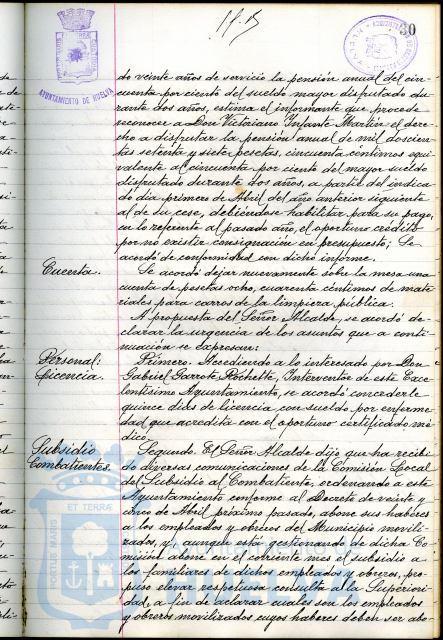 30
AYUNTAMIENTO DE HUELVA
do veinte años de servicio la pensión anual del cin-
cuenta por ciento del sueldo mayor disfrutado du-
rante dos años, estima el informante que procede
reconocer a Don Victoriano Infante Martín el dere-
cho a disfrutar la pensión anual de mil doscien-
tas setenta y siete pesetas, cincuenta céntimos equi-
valente al cincuenta por ciento del mayor sueldo
disfrutado durante dos años, a partir del indica-
do día primero de Abril del año anterior siguiente
al de su cese, debiéndose habilitar para su pago,
en lo referente al pasado año, el oportuno crédito
por no existir consignación en presupuesto; Se
acordó de conformidad con dicho informe.
Cuenta.
Se acordó dejar nuevamente sobre la mesa una
cuenta de pesetas ocho, cuarenta céntimos de mate-
riales para carros de la limpieza pública.
A propuesta del Señor Alcalde, se acordó de-
clarar la urgencia de los asuntos que a conti-
nuación se expresan:
Personal:
Licencia.
Primero. Accediendo a lo interesado por Don
Gabriel Garrote Rochette, Interventor de este Exce-
lentísimo Ayuntamiento, se acordó concederle
quince días de licencia con sueldo por enferme-
dad que acredita con el oportuno certificado mé-
dico.
Subsidio
Combatientes.
Segundo. El Señor Alcalde dijo que ha recibi-
do diversas comunicaciones de la Comisión Local
del Subsidio al Combatiente, ordenando a este
Ayuntamiento conforme al Decreto de veinte y
cinco de Abril próximo pasado, abone sus haberes
a los empleados y obreros del Municipio movili-
zados, y aunque está gestionando de dicha Co-
misión abone en el corriente mes el subsidio a
los familiares de dichos empleados y obreros, pro-
puso elevar respetuosa consulta a la Superiori-
dad, a fin de aclarar cuales son los empleados
y obreros movilizados cuyos haberes deben ser abo-
PORTUS MARIS ET TERRAE